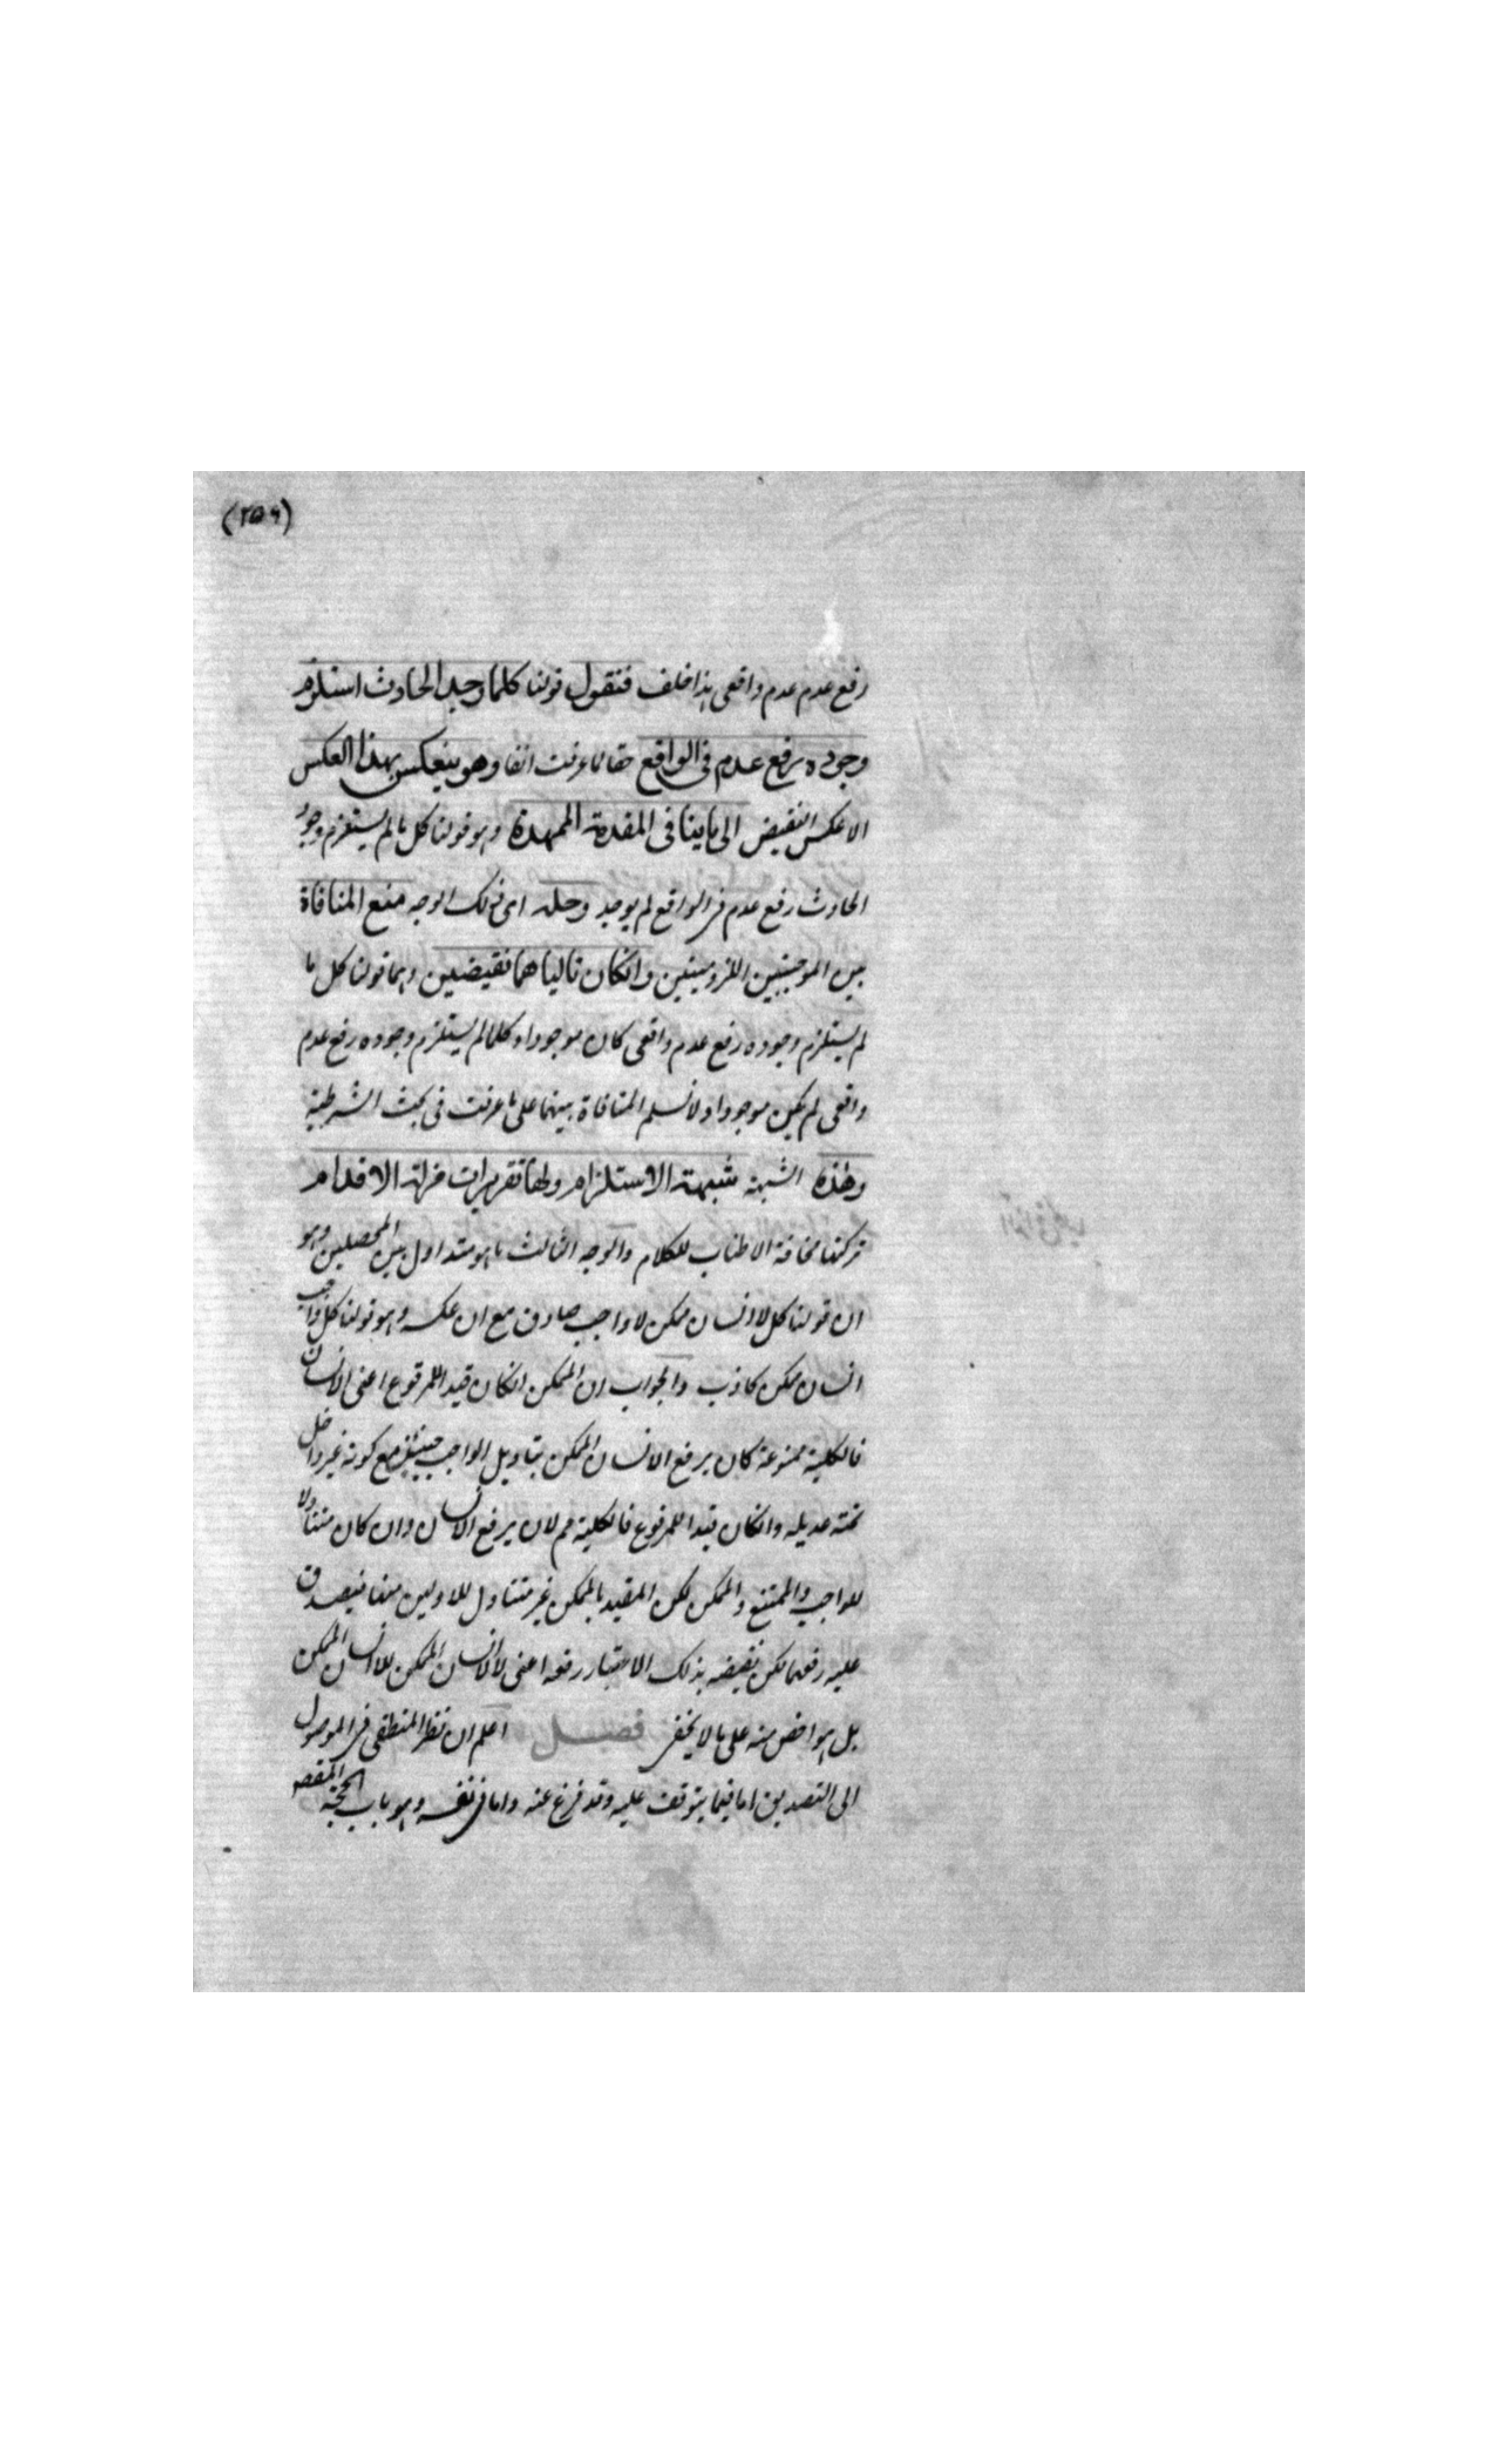 (٢٥٩)
رفع عدم عدم واقعى هذا خلف فنقول قولنا كلما وجد الحادث استلزم
وجوده رفع عدم فى الواقع حقا لما عرفت انفا وهو ينعكس بهذا العكس
الا عكس النقيض الى ما ينافى المقدمة الممهدة وهو قولنا كل ما لم يستلزم وجود
الحادث رفع عدم فى الواقع لم يوجد وحله اى ذلك الوجه منع المنافاة
بين الموجبتين اللزوميتين وانكان تالياهما نقيضين وهما قولنا كل ما
لم يستلزم وجوده رفع عدم واقعى كان موجودا وكلما لم يستلزم وجوده رفع عدم
واقعى لم يكن موجودا ولا نسلم المنافاة بينهما على ما عرفت فى بحث الشرطية
وهذه الشبهة شبهة الاستلزام ولها تقريرات مزلة الاقدام
تركتها مخافة الاطناب للكلام والوجه الثالث ما هو متداول بين المحصلين وهو
ان قولنا كل لا انسان ممكن لا واجب صادق مع ان عكسه وهو قولنا كل واجب
انسان ممكن كاذب والجواب ان الممكن انكان قيدا للمرفوع اعنى الانسان
فالكلية ممنوعة كان يرفع الانسان الممكن يتاويل الواجب حينئذ مع كونه غير داخل
تحته عديله وانكان قيدا للمرفوع فالكلية مم لان يرفع الانسان وان كان متناولا
للواجب والممتنع والممكن لكن المقيد بالممكن غير متناول للاولين منها فيصدق
عليه رفعهما لكن نقيضه بذلك الاعتبار رفعه اعنى لا لانسان الممكن للاانسان الممكن
بل هو اخص منه على ما لا يخفى فصل اعلم ان نظر المنطقى فى الموصول
الى التصديق اما فيما يتوقف عليه وقد فرغ عنه واما فى نفسه وهو باب الحجة المقصد